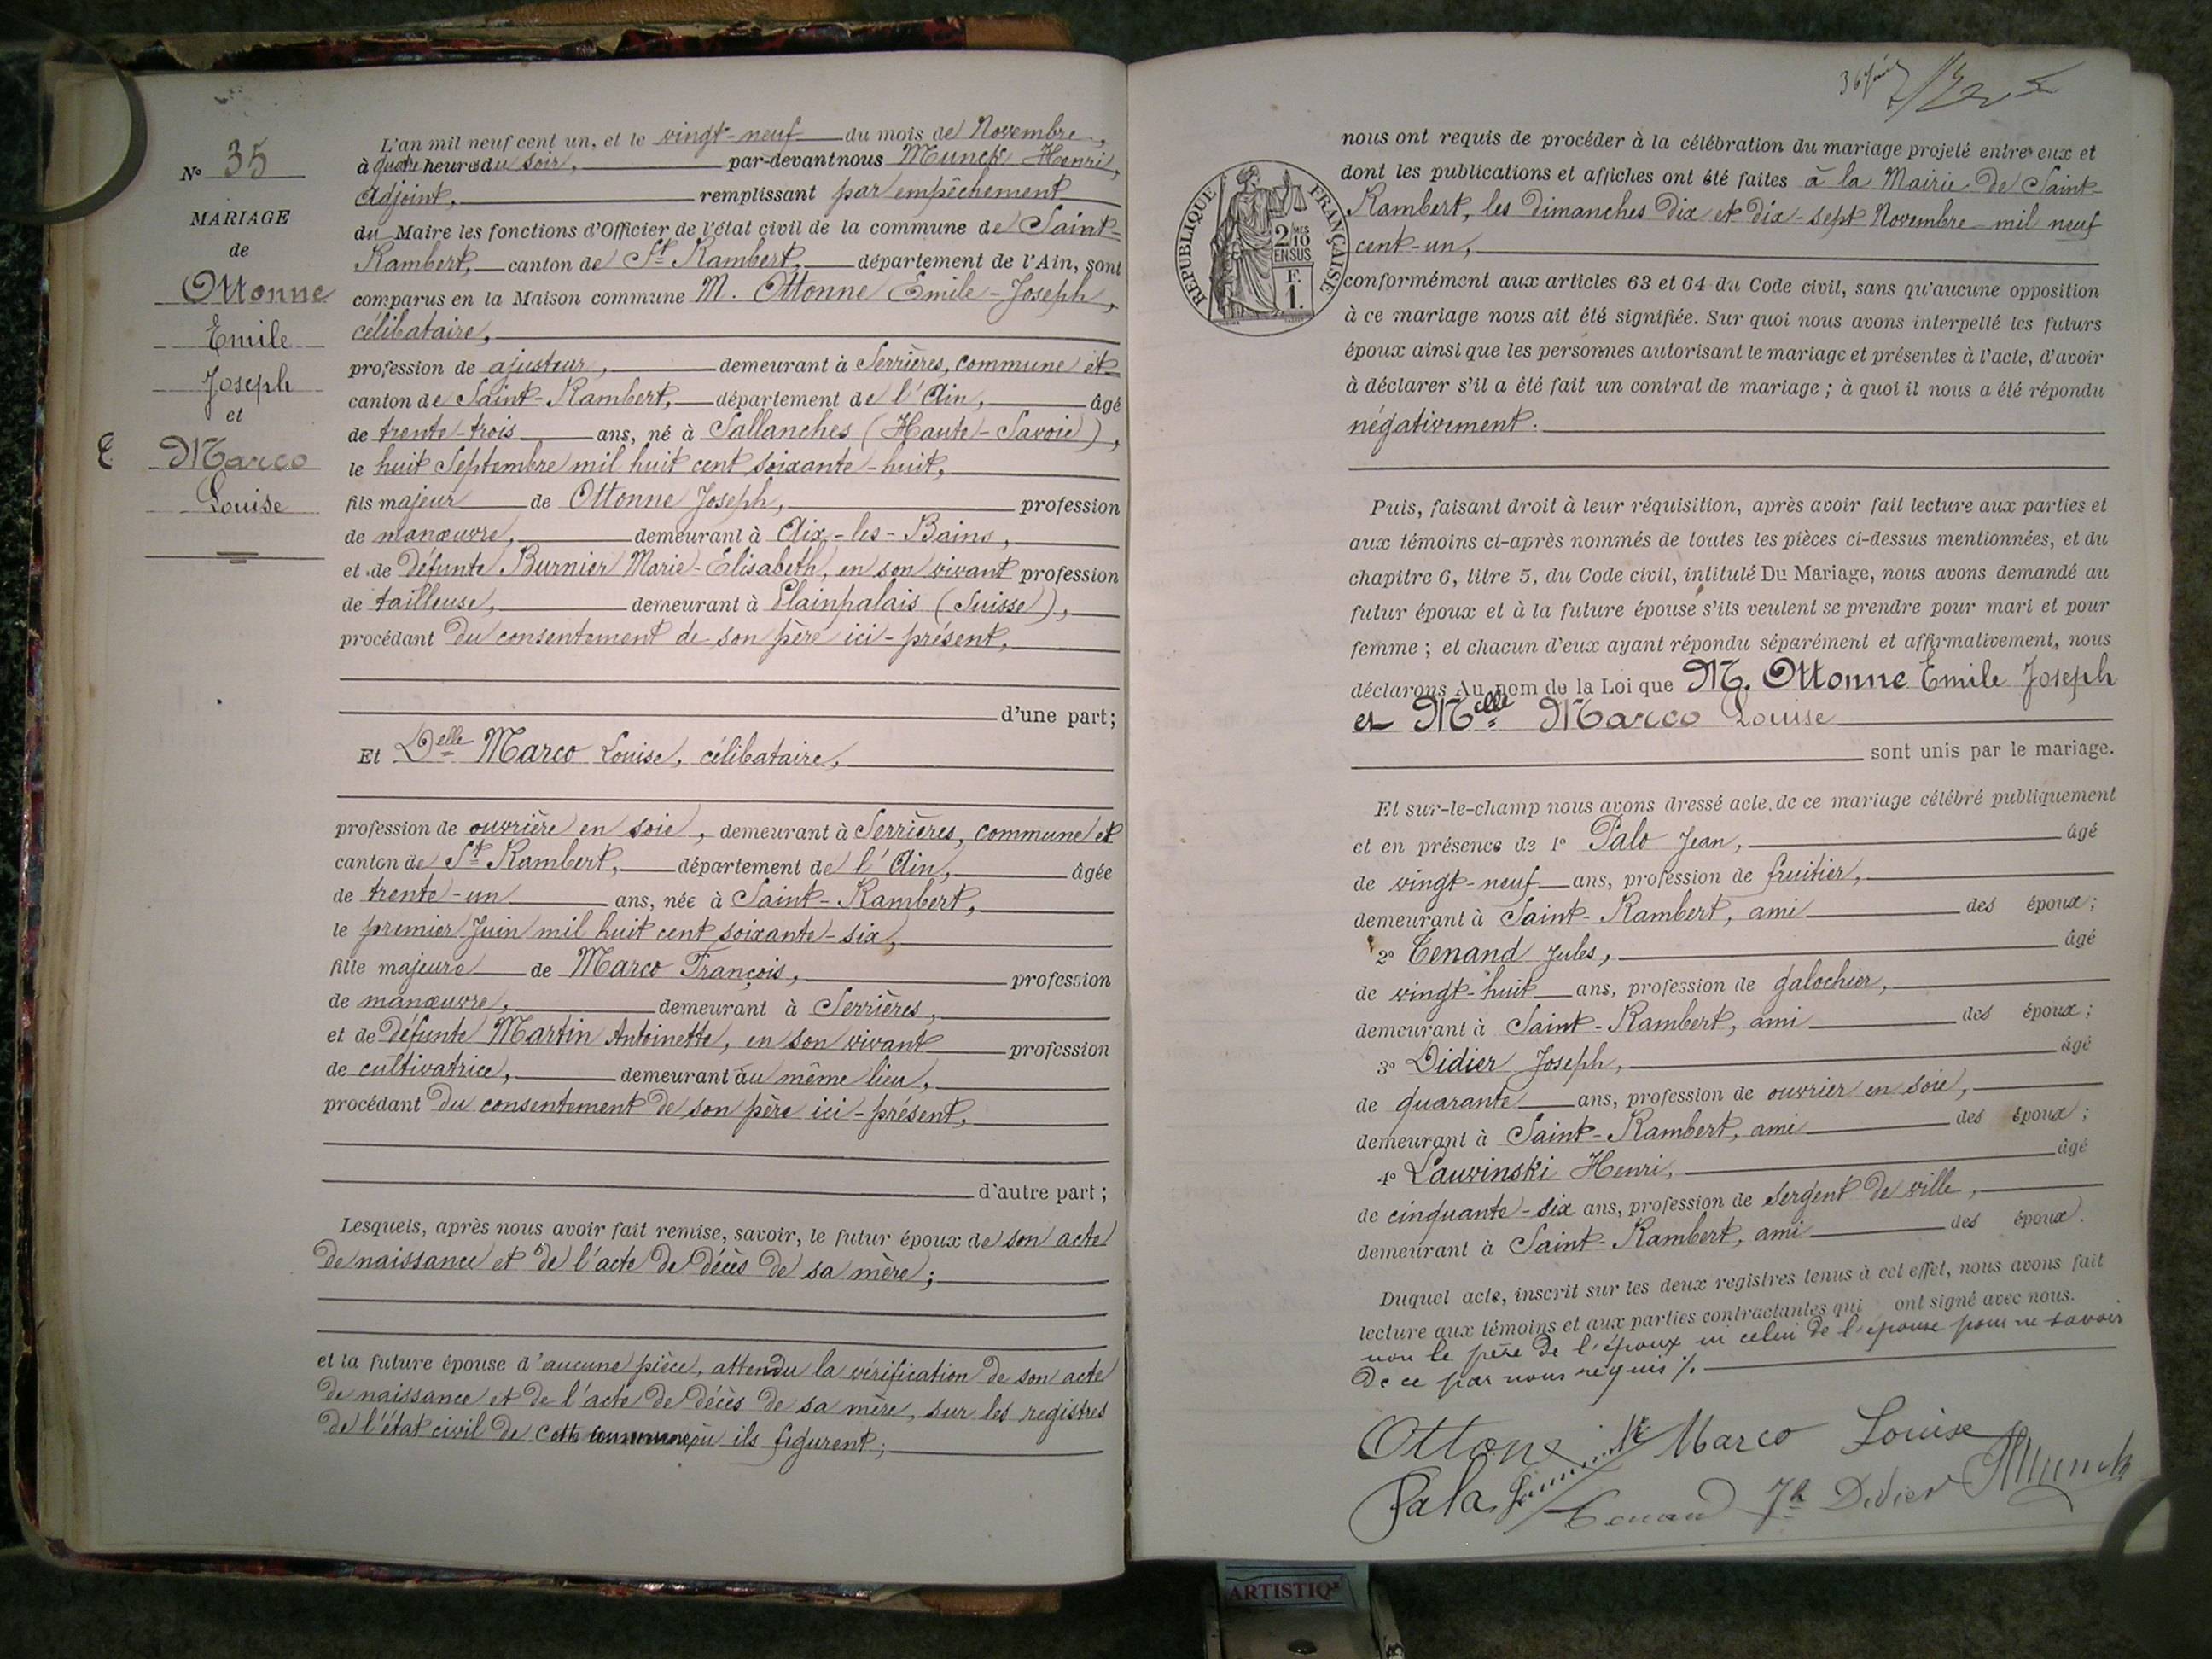 N° 35
MARIAGE
de
Ottonne
Emile
Joseph
et
Marco
Louise
L'an mil neuf cent un, et le vingt-neuf du mois de Novembre,
à quatre heures du soir, par-devant nous Munck Henri,
Adjoint, remplissant par empêchement
du Maire les fonctions d'Officier de l'état civil de la commune de Saint-
Rambert, canton de St Rambert, département de l'Ain, sont
comparus en la Maison commune M. Ottonne Emile-Joseph,
célibataire,
profession de ajusteur, demeurant à Serrières, commune et
canton de Saint-Rambert, département de l'Ain, âgé
de trente-trois ans, né à Sallanches (Haute-Savoie),
le huit Septembre mil huit cent soixante-huit,
fils majeur de Ottonne Joseph, profession
de manœuvre, demeurant à Aix-les-Bains,
et de défunte Burnier Marie-Elisabeth, en son vivant profession
de tailleuse, demeurant à Plainpalais (Suisse),
procédant du consentement de son père ici-présent,
d'une part;
Et Delle Marco Louise, célibataire,
profession de ouvrière en soie, demeurant à Serrières, commune et
canton de St Rambert, département de l'Ain, âgée
de trente-un ans, née à Saint-Rambert,
le premier Juin mil huit cent soixante-six,
fille majeure de Marco François, profession
de manœuvre, demeurant à Serrières,
et de défunte Martin Antoinette, en son vivant profession
de cultivatrice, demeurant au même lieu,
procédant du consentement de son père ici-présent,
d'autre part;
Lesquels, après nous avoir fait remise, savoir, le futur époux de son acte
de naissance et de l'acte de décès de sa mère;
et la future épouse d'aucune pièce, attendu la vérification de son acte
de naissance et de l'acte de décès de sa mère, sur les registres
de l'état civil de cette commune où ils figurent;
RÉPUBLIQUE FRANÇAISE
2/10 MES
EN SUS
F.
1.
nous ont requis de procéder à la célébration du mariage projeté entre eux et
dont les publications et affiches ont été faites à la Mairie de Saint-
Rambert, les dimanches dix et dix-sept Novembre mil neuf
cent-un,
conformément aux articles 63 et 64 du Code civil, sans qu'aucune opposition
à ce mariage nous ait été signifiée. Sur quoi nous avons interpellé les futurs
époux ainsi que les personnes autorisant le mariage et présentes à l'acte, d'avoir
à déclarer s'il a été fait un contrat de mariage; à quoi il nous a été répondu
négativement.
Puis, faisant droit à leur réquisition, après avoir fait lecture aux parties et
aux témoins ci-après nommés de toutes les pièces ci-dessus mentionnées, et du
chapitre 6, titre 5, du Code civil, intitulé Du Mariage, nous avons demandé au
futur époux et à la future épouse s'ils veulent se prendre pour mari et pour
femme; et chacun d'eux ayant répondu séparément et affirmativement, nous
déclarons Au nom de la Loi que M. Ottonne Emile Joseph
et Melle Marco Louise
sont unis par le mariage.
Et sur-le-champ nous avons dressé acte de ce mariage célébré publiquement
et en présence de 1° Palo Jean, âgé
de vingt-neuf ans, profession de fruitier,
demeurant à Saint-Rambert, ami des époux;
2° Tenand Jules, âgé
de vingt-huit ans, profession de galochier,
demeurant à Saint-Rambert, ami des époux;
3° Didier Joseph, âgé
de quarante ans, profession de ouvrier en soie,
demeurant à Saint-Rambert, ami des époux;
4° Lauvinski Henri, âgé
de cinquante-six ans, profession de sergent de ville,
demeurant à Saint-Rambert, ami des époux.
Duquel acte, inscrit sur les deux registres tenus à cet effet, nous avons fait
lecture aux témoins et aux parties contractantes qui ont signé avec nous.
non le père de l'époux ni celui de l'épouse pour ne savoir
de ce par nous requis %
Ottone Marco Louise
Pala Tenand Jh Didier Munck
ARTISTIQ